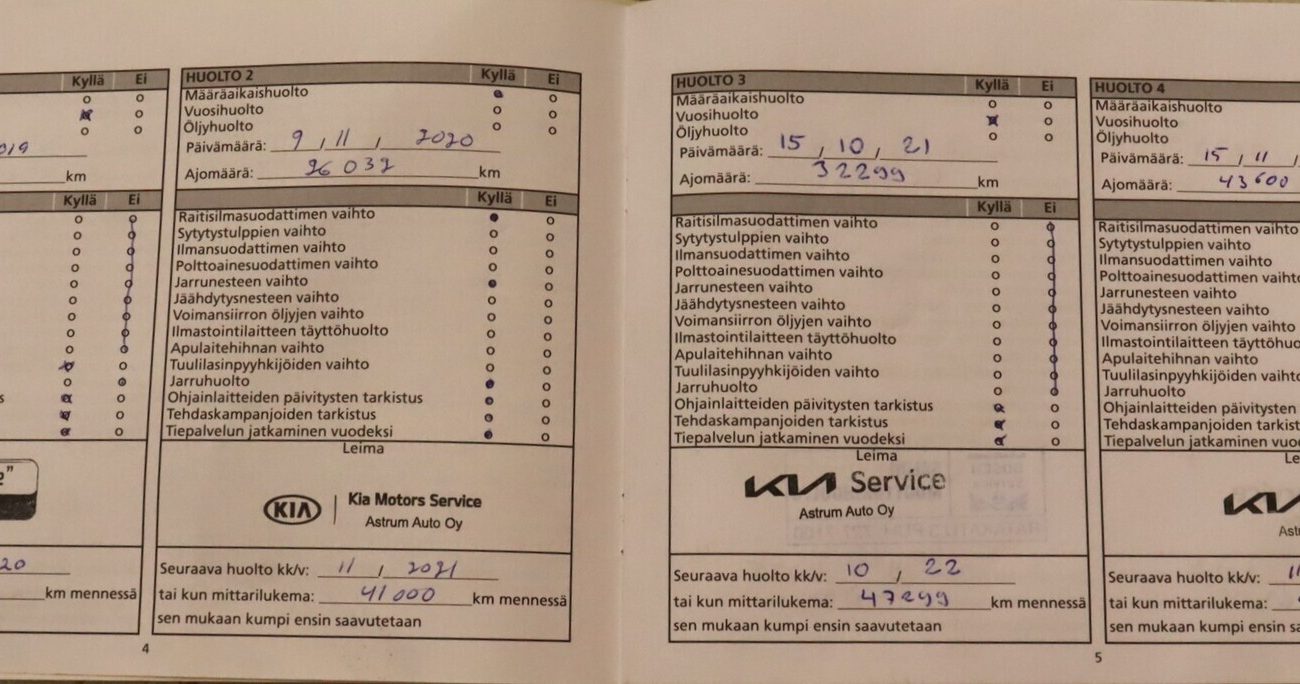 Kyllä Ei
2019
km
Kyllä Ei
2"
20
km mennessä
4
HUOLTO 2 Kyllä Ei
Määräaikaishuolto
Vuosihuolto
Öljyhuolto
Päivämäärä: 9 / 11 / 2020
Ajomäärä: 26 032 km
Kyllä Ei
Raitisilmasuodattimen vaihto
Sytytystulppien vaihto
Ilmansuodattimen vaihto
Polttoainesuodattimen vaihto
Jarrunesteen vaihto
Jäähdytysnesteen vaihto
Voimansiirron öljyjen vaihto
Ilmastointilaitteen täyttöhuolto
Apulaitehihnan vaihto
Tuulilasinpyyhkijöiden vaihto
Jarruhuolto
Ohjainlaitteiden päivitysten tarkistus
Tehdaskampanjoiden tarkistus
Tiepalvelun jatkaminen vuodeksi
Leima
KIA Kia Motors Service
Astrum Auto Oy
Seuraava huolto kk/v: 11 , 2021
tai kun mittarilukema: 41000 km mennessä
sen mukaan kumpi ensin saavutetaan
HUOLTO 3 Kyllä Ei
Määräaikaishuolto
Vuosihuolto
Öljyhuolto
Päivämäärä: 15 , 10 , 21
Ajomäärä: 32299 km
Kyllä Ei
Raitisilmasuodattimen vaihto
Sytytystulppien vaihto
Ilmansuodattimen vaihto
Polttoainesuodattimen vaihto
Jarrunesteen vaihto
Jäähdytysnesteen vaihto
Voimansiirron öljyjen vaihto
Ilmastointilaitteen täyttöhuolto
Apulaitehihnan vaihto
Tuulilasinpyyhkijöiden vaihto
Jarruhuolto
Ohjainlaitteiden päivitysten tarkistus
Tehdaskampanjoiden tarkistus
Tiepalvelun jatkaminen vuodeksi
Leima
KIA Service
Astrum Auto Oy
Seuraava huolto kk/v: 10 , 22
tai kun mittarilukema: 47299 km mennessä
sen mukaan kumpi ensin saavutetaan
5
HUOLTO 4
Määräaikaishuolto
Vuosihuolto
Öljyhuolto
Päivämäärä: 15 / 11 /
Ajomäärä: 43600
Raitisilmasuodattimen vaihto
Sytytystulppien vaihto
Ilmansuodattimen vaihto
Polttoainesuodattimen vaihto
Jarrunesteen vaihto
Jäähdytysnesteen vaihto
Voimansiirron öljyjen vaihto
Ilmastointilaitteen täyttöhuo
Apulaitehihnan vaihto
Tuulilasinpyyhkijöiden vaihto
Jarruhuolto
Ohjainlaitteiden päivitysten
Tehdaskampanjoiden tarkist
Tiepalvelun jatkaminen vuo
Le
Ast
Seuraava huolto kk/v: 11
tai kun mittarilukema:
sen mukaan kumpi ensin sa